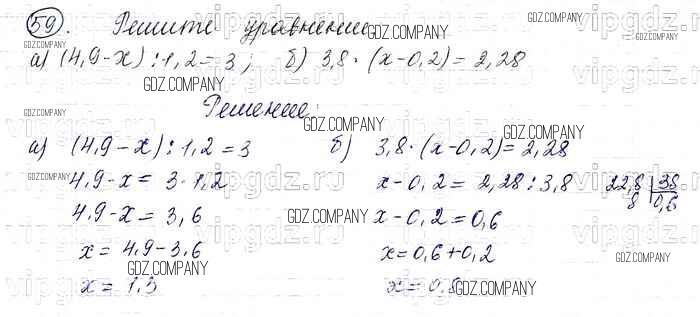 59. Решите уравнение
а) (4,9-х):1,2=3; б) 3,8·(х-0,2)=2,28
Решение:
а) (4,9-х):1,2=3
4,9-х=3·1,2
4,9-х=3,6
х=4,9-3,6
х=1,3
б) 3,8·(х-0,2)=2,28
х-0,2=2,28:3,8
22,8 38
8 0,6
х-0,2=0,6
х=0,6+0,2
х=0,8
GDZ.COMPANY
vipgdz.ru